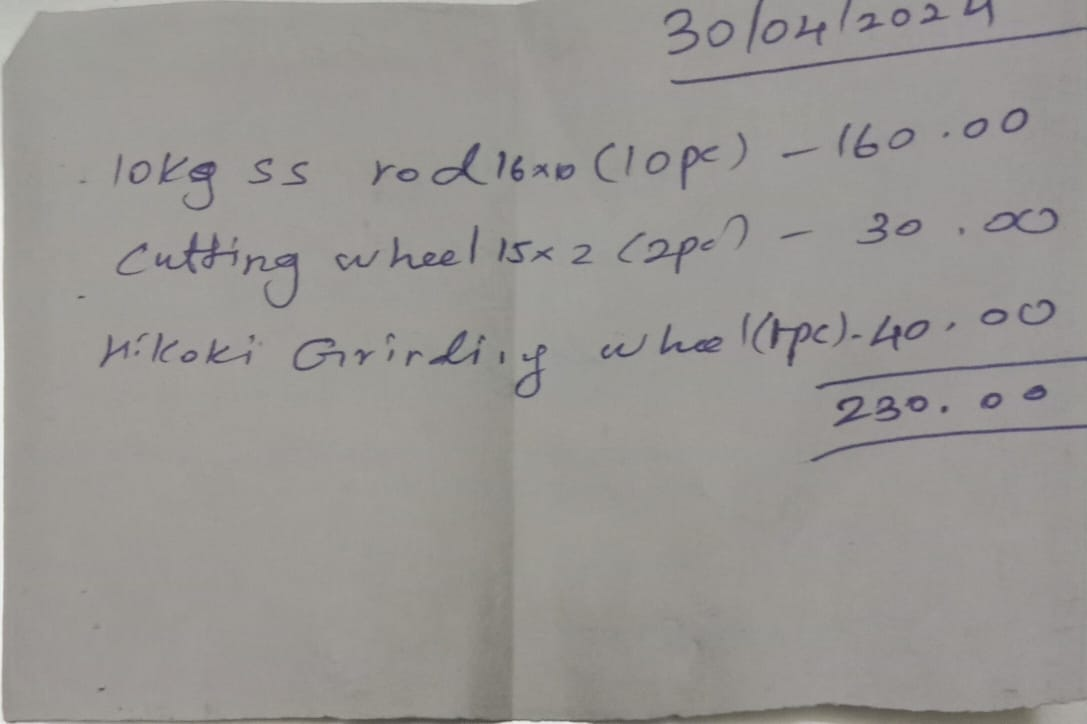 30/04/2024
10kg ss rod 16x10 (10pc) - 160.00
Cutting wheel 15x2 (2pc) - 30.00
Hikoki Grinding wheel (1pc) - 40.00
230.00